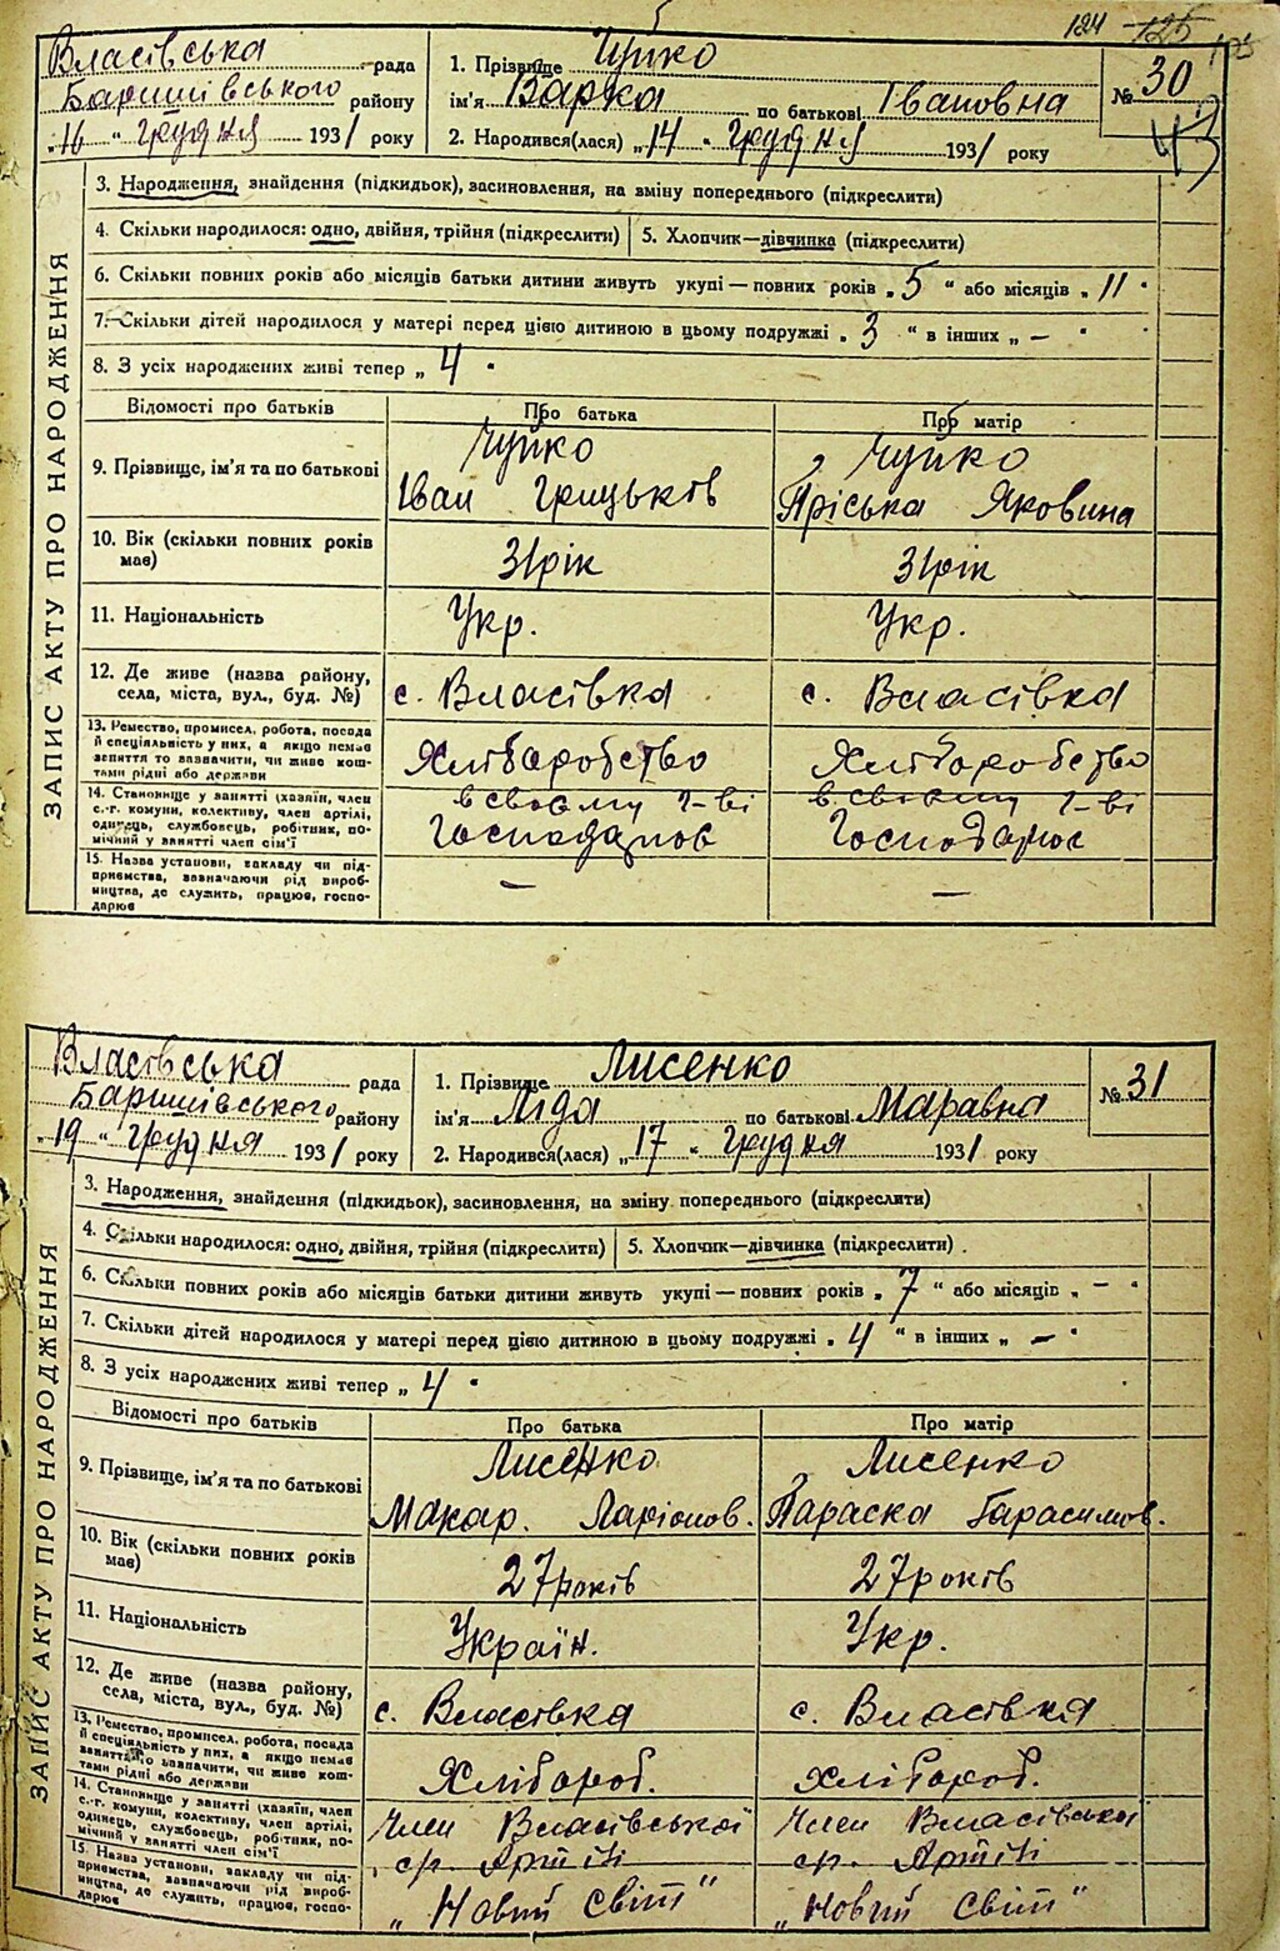 124 125
Власівська рада
Баришівського району
„16“ грудня 1931 року
1. Прізвище Чуйко
ім'я Варка по батькові Івановна
2. Народився(лася) „14“ грудня 1931 року
№ 30
ЗАПИС АКТУ ПРО НАРОДЖЕННЯ
3. Народження, знайдення (підкидьок), засиновлення, на зміну попереднього (підкреслити)
4. Скільки народилося: одно, двійня, трійня (підкреслити) 5. Хлопчик—дівчинка (підкреслити)
6. Скільки повних років або місяців батьки дитини живуть укупі — повних років „5“ або місяців „11“
7. Скільки дітей народилося у матері перед цією дитиною в цьому подружжі „3“ в інших „—“
8. З усіх народжених живі тепер „4“
Відомості про батьків Про батька Про матір
9. Прізвище, ім'я та по батькові
Чуйко Чуйко
Іван Грицьків Пріська Яковина
10. Вік (скільки повних років має) 31 рік 31 рік
11. Національність Укр. Укр.
12. Де живе (назва району, села, міста, вул., буд. №) с. Власівка с. Власівка
13. Ремество, промисел, робота, посада
й спеціяльність у них, а якщо немає
заняття то зазначити, чи живе кош-
тами рідні або держави
Хліборобство Хліборобство
14. Становище у занятті (хазяїн, член
с.-г. комуни, колективу, член артілі,
одинець, службовець, робітник, по-
мічний у занятті член сім'ї
в своєму г-ві в своєму г-ві
15. Назва установи, закладу чи під-
приємства, зазначаючи рід вироб-
ництва, де служить, працює, госпо-
дарює
— —
Власівська рада
Баришівського району
„19“ грудня 1931 року
1. Прізвище Лисенко
ім'я Ліда по батькові Маравна
2. Народився(лася) „17“ грудня 1931 року
№ 31
ЗАПИС АКТУ ПРО НАРОДЖЕННЯ
3. Народження, знайдення (підкидьок), засиновлення, на зміну попереднього (підкреслити)
4. Скільки народилося: одно, двійня, трійня (підкреслити) 5. Хлопчик—дівчинка (підкреслити)
6. Скільки повних років або місяців батьки дитини живуть укупі — повних років „7“ або місяців „—“
7. Скільки дітей народилося у матері перед цією дитиною в цьому подружжі „4“ в інших „—“
8. З усіх народжених живі тепер „4“
Відомості про батьків Про батька Про матір
9. Прізвище, ім'я та по батькові
Лисенко Лисенко
Макар. Ларіонов. Параска Гарасимов.
10. Вік (скільки повних років має) 27 років 27 років
11. Національність Україн. Укр.
12. Де живе (назва району, села, міста, вул., буд. №) с. Власівка с. Власівка
13. Ремество, промисел, робота, посада
й спеціяльність у них, а якщо немає
заняття то зазначити, чи живе кош-
тами рідні або держави
Хлібороб. Хлібороб.
14. Становище у занятті (хазяїн, член
с.-г. комуни, колективу, член артілі,
одинець, службовець, робітник, по-
мічний у занятті член сім'ї
Член Власівської Член Власівської
Артілі Артілі
15. Назва установи, закладу чи під-
приємства, зазначаючи рід вироб-
ництва, де служить, працює, госпо-
дарює
„Новий Світ“ „Новий Світ“